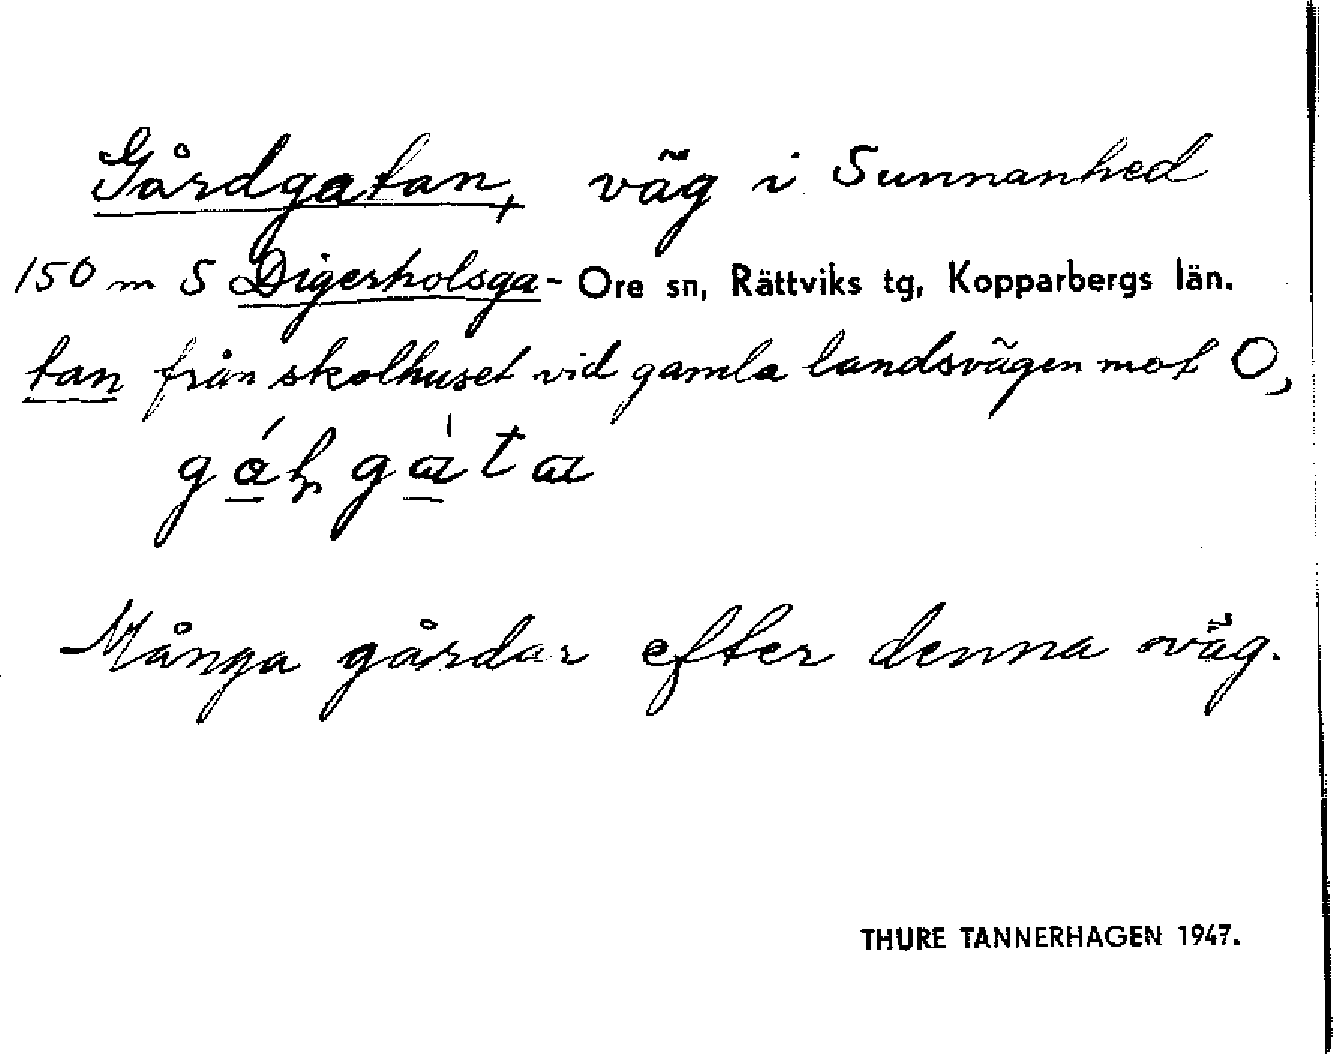 Gårdgatan, väg i Sunnanhed
150 m S Digerholsga- Ore sn, Rättviks tg, Kopparbergs län.
tan från skolhuset vid gamla landsvägen mot O,
Många gårdar efter denna väg.
THURE TANNERHAGEN 1947.